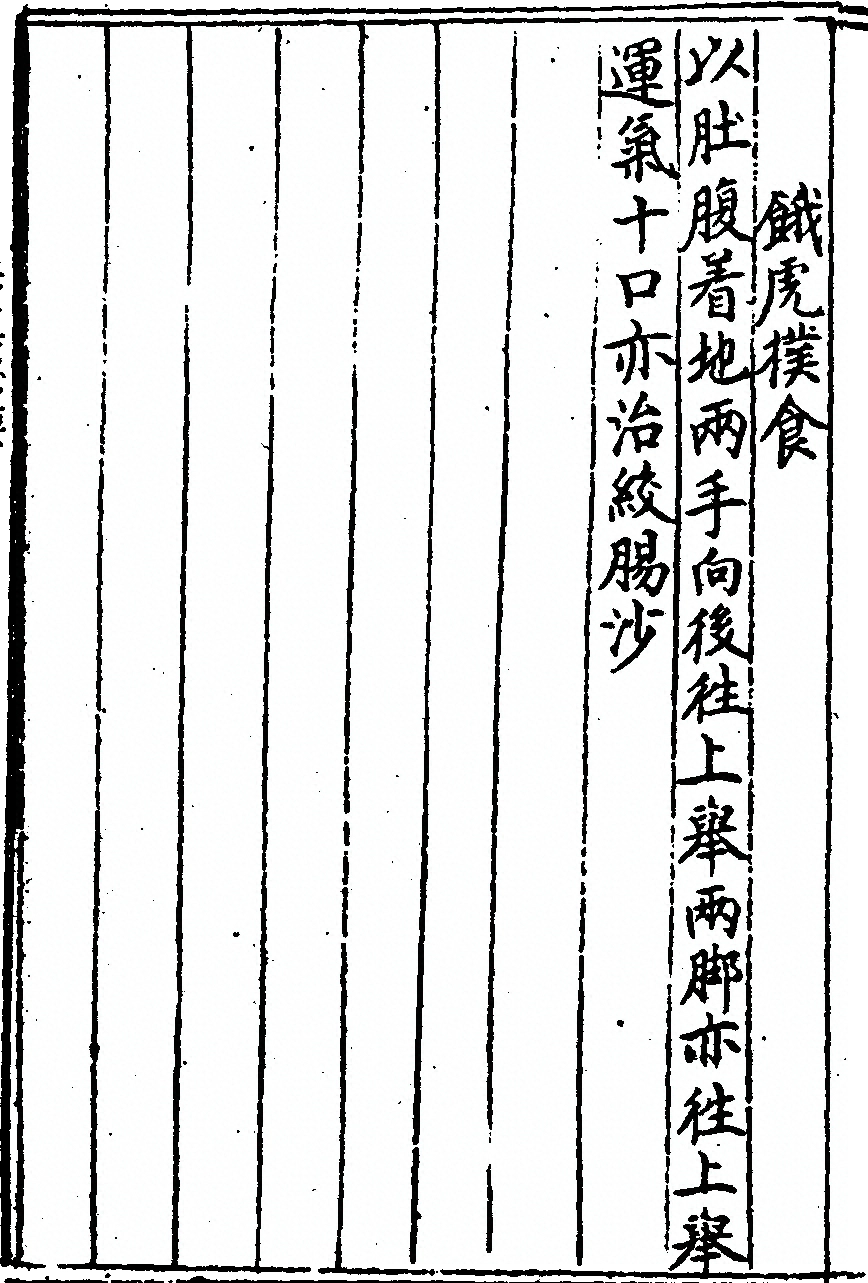 餓虎撲食
以肚腹着地兩手向後往上舉兩脚亦往上舉
運氣十口亦治絞腸沙